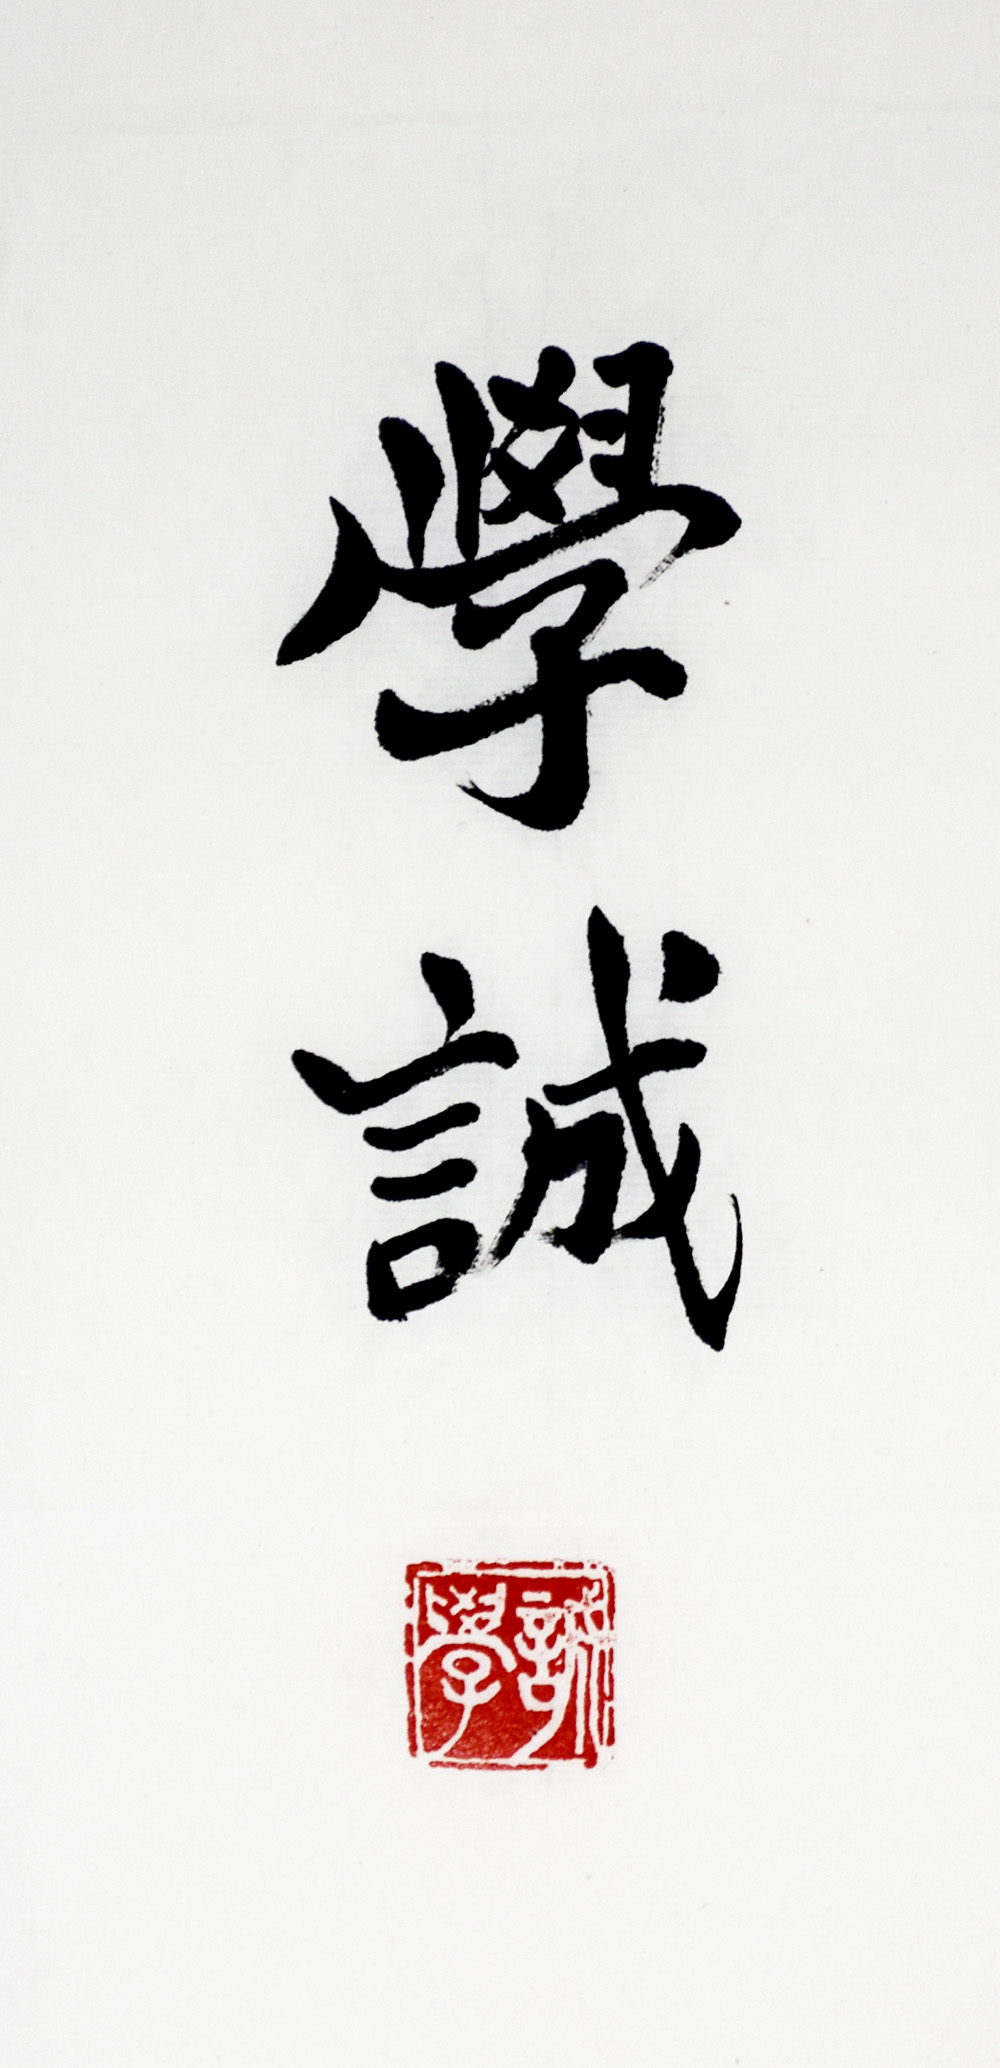 學誠
誠學